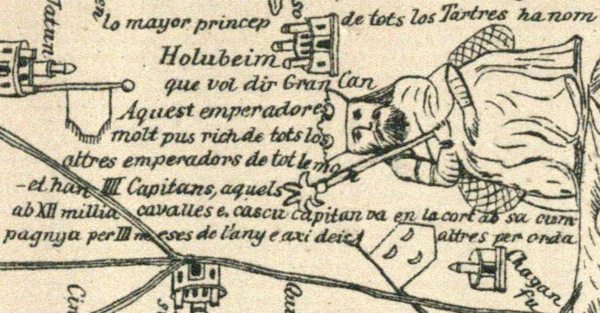 lo mayor princep de tots los Tartres ha nom
Holubeim
que vol dir Gran Can
Aquest emperadores
molt pus rich de tots los
altres emperadors de tot lo mon
et han IIII Capitans, aquels
ab XII millia cavalles e, cascu capitan va en la cort ab sa cum-
pagnya per III meses de l'any e axi deis altres per orda
Chagan
fu